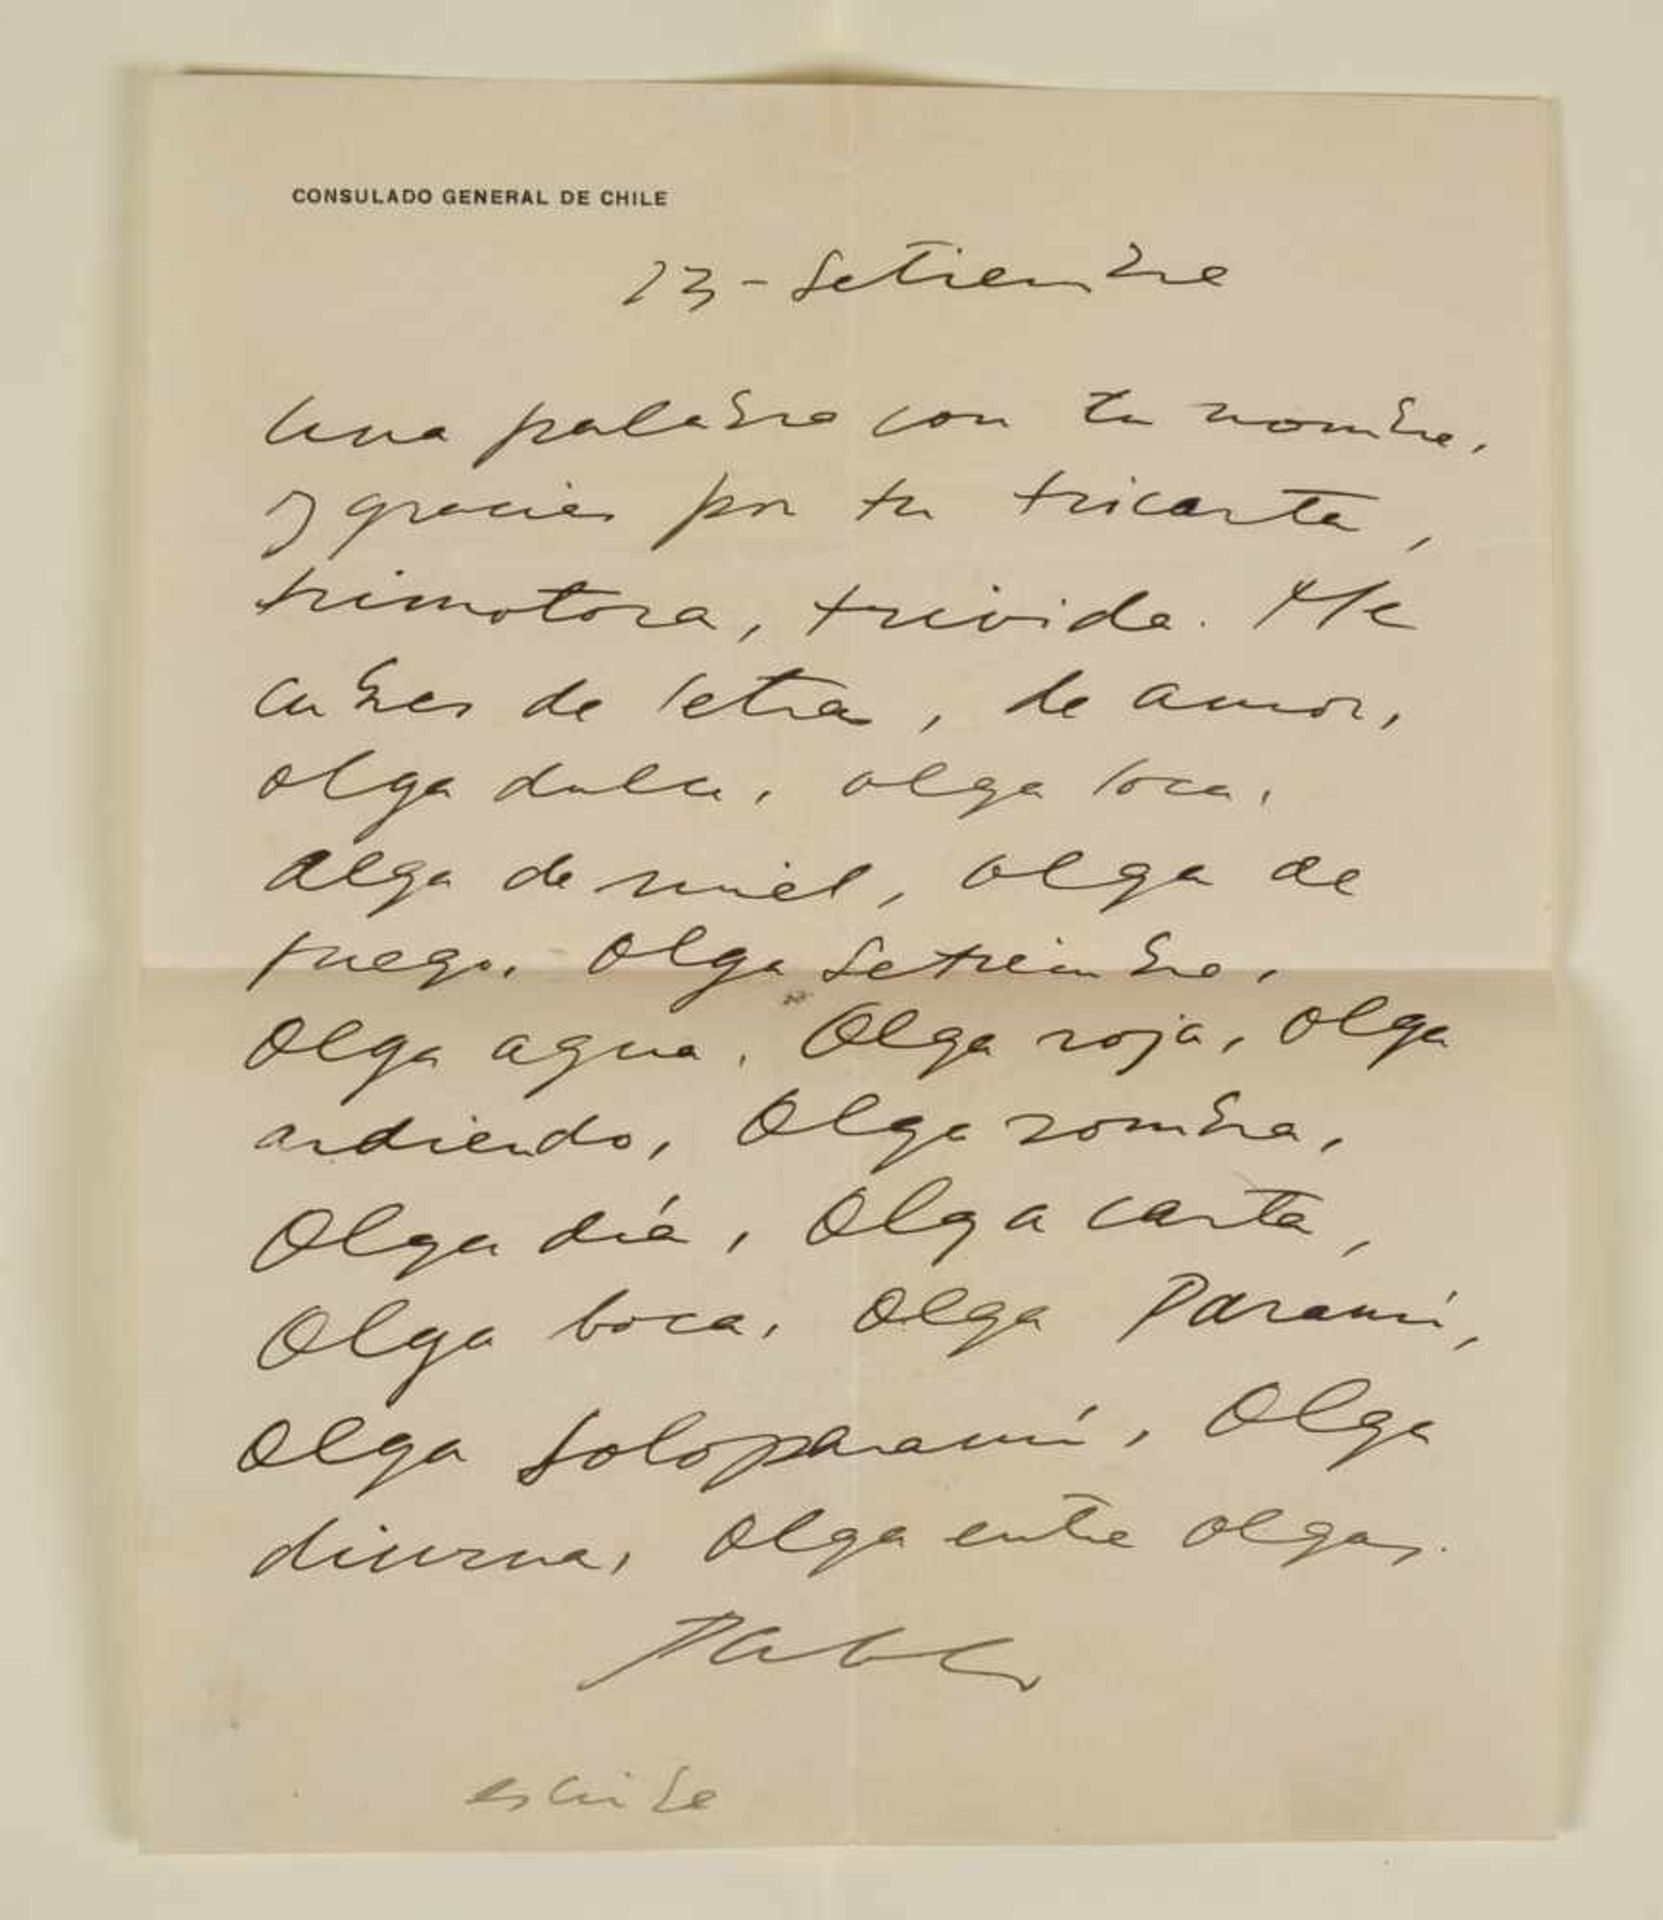 CONSULADO GENERAL DE CHILE
23-Setiembre
Una palabra con tu nombre,
y gracias por tu tricarta,
trimotora, trivida. Me
cubres de letras, de amor,
olga dulce, olga loca,
Olga de miel, olga de
fuego, Olga Setiembre,
Olga agua, Olga roja, Olga
ardiendo, Olga sombra,
Olga día, Olga carta,
Olga boca, Olga Paramí,
Olga Soloparamí, Olga
diurna, Olga entre olgas.
Pablo
escribe